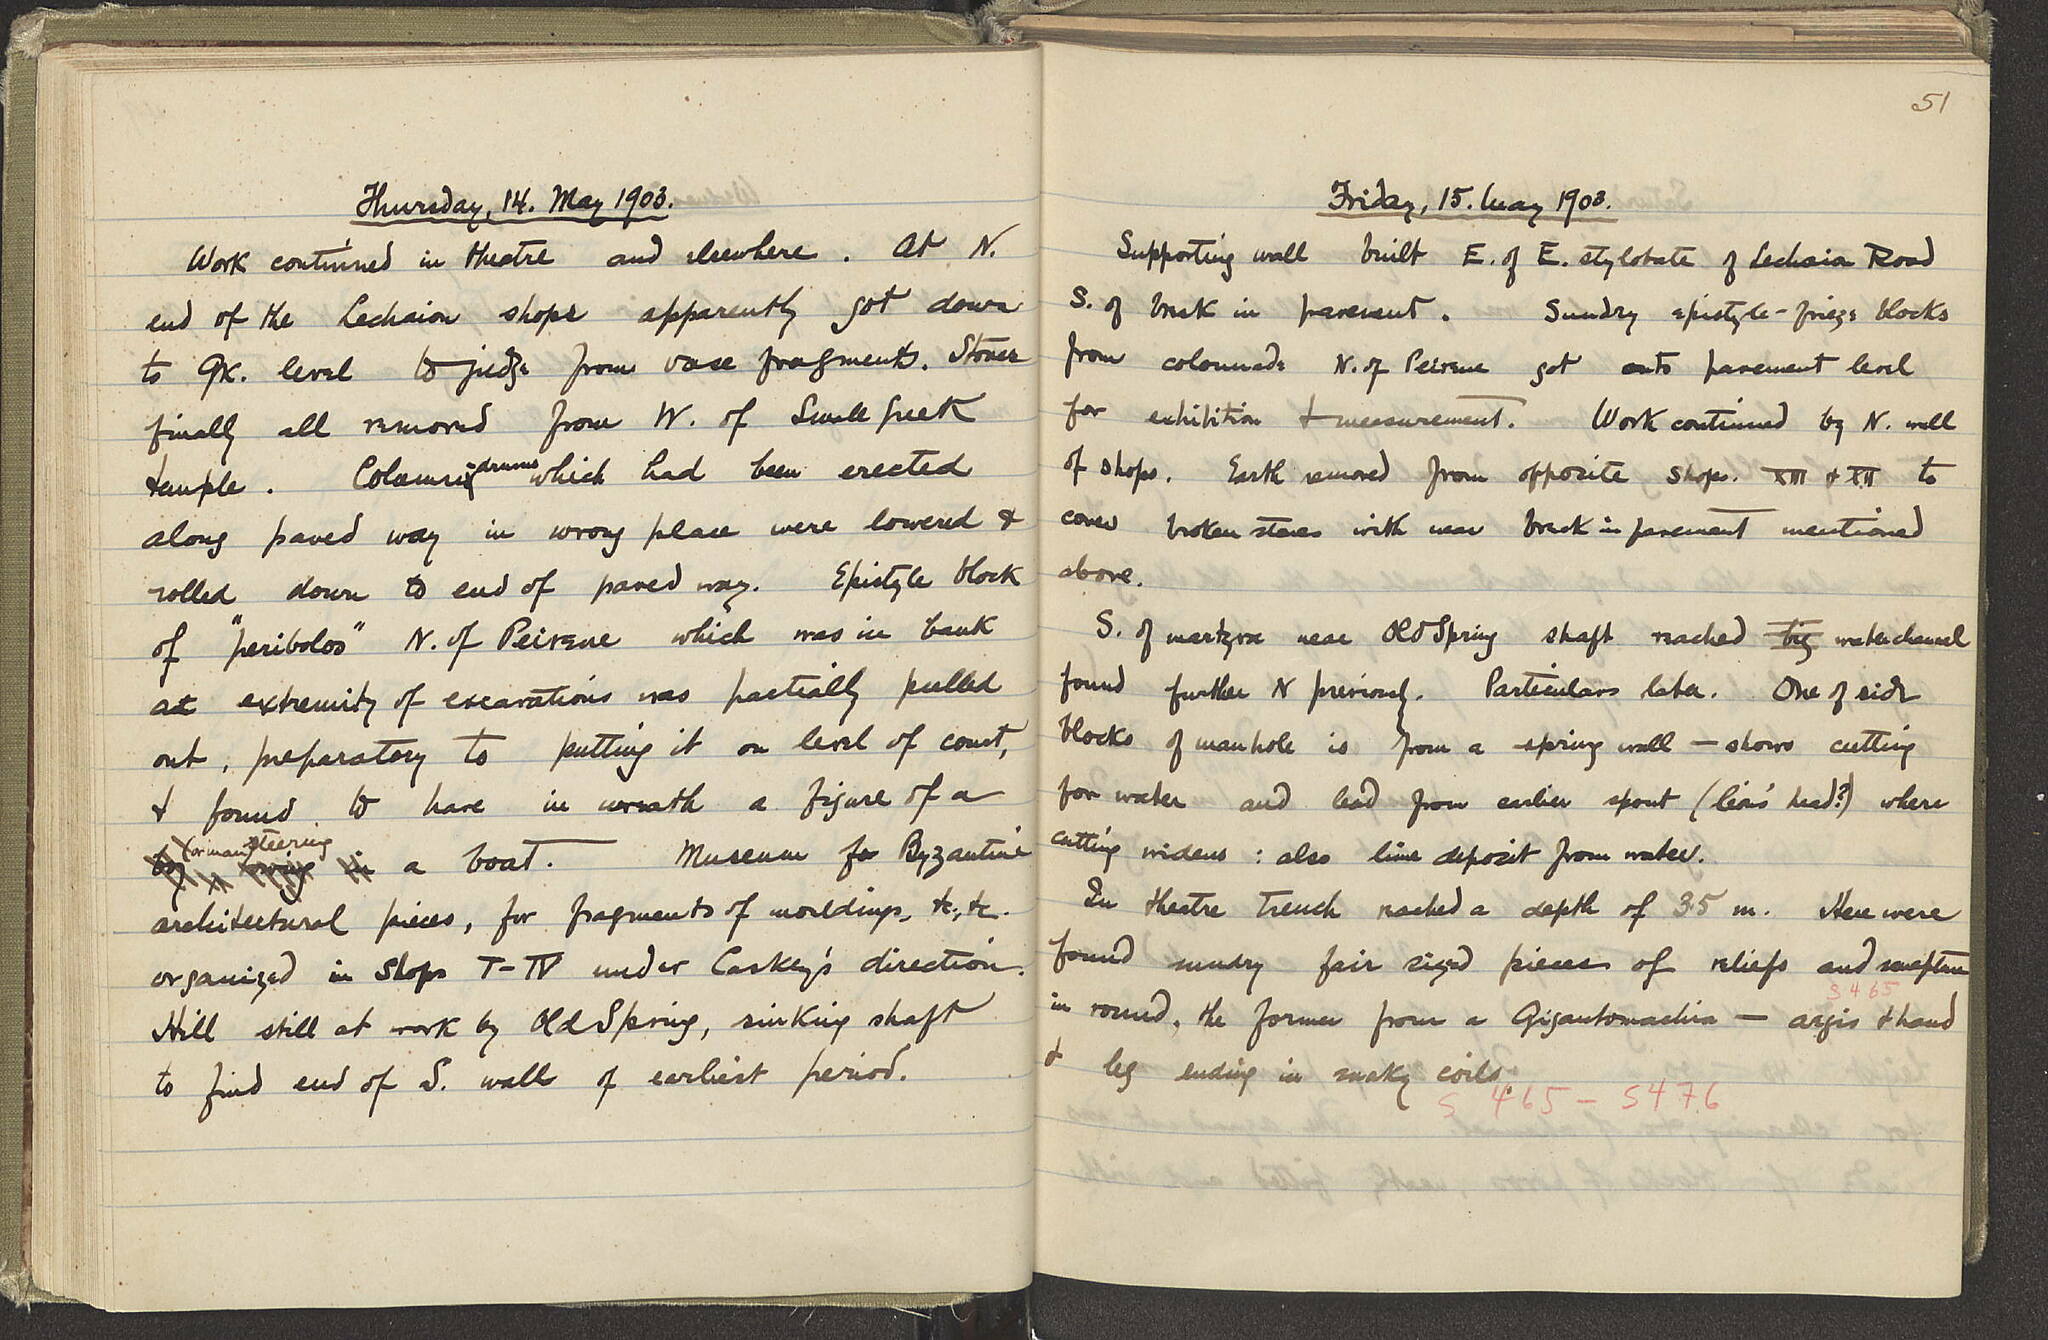 Thursday, 14. May 1903.
Work continued in theatre and elsewhere. At N.
end of the Lechaion shops apparently got down
to Gk. level to judge from vase fragments. Stones
finally all removed from W. of Small Greek
temple. Column drums which had been erected
along paved way in wrong place were lowered &
rolled down to end of paved way. Epistyle block
of "peribolos" N. of Peirene which was in bank
at extremity of excavations was partially pulled
out, preparatory to putting it on level of court,
& found to have in wreath a figure of a
boy (or man) steering a boat. Museum for Byzantine
architectural pieces, for fragments of mouldings, &c., &c.
organized in Shops I-IV under Caskey's direction.
Hill still at work by Old Spring, sinking shaft
to find end of S. wall of earliest period.
51
Friday, 15. May 1903.
Supporting wall built E. of E. stylobate of Lechaion Road
S. of break in pavement. Sundry epistyle-frieze blocks
from colonnade N. of Peirene got onto pavement level
for exhibition & measurement. Work continued by N. wall
of shops. Earth removed from opposite shops. XIII & XII to
cover broken stones with near break in pavement mentioned
above.
S. of near Old Spring shaft reached big waterchannel
found further N previously. Particulars later. One of side
blocks of manhole is from a spring wall — shows cutting
for water and lead from earlier spout (lion's head?) where
cutting widens : also lime deposit from water.
In theatre trench reached a depth of 3.5 m. Here were
found sundry fair sized pieces of reliefs and sculpture
S465
in round, the former from a Gigantomachia — aegis & hand
& leg ending in snaky coils.
S 465 – S476